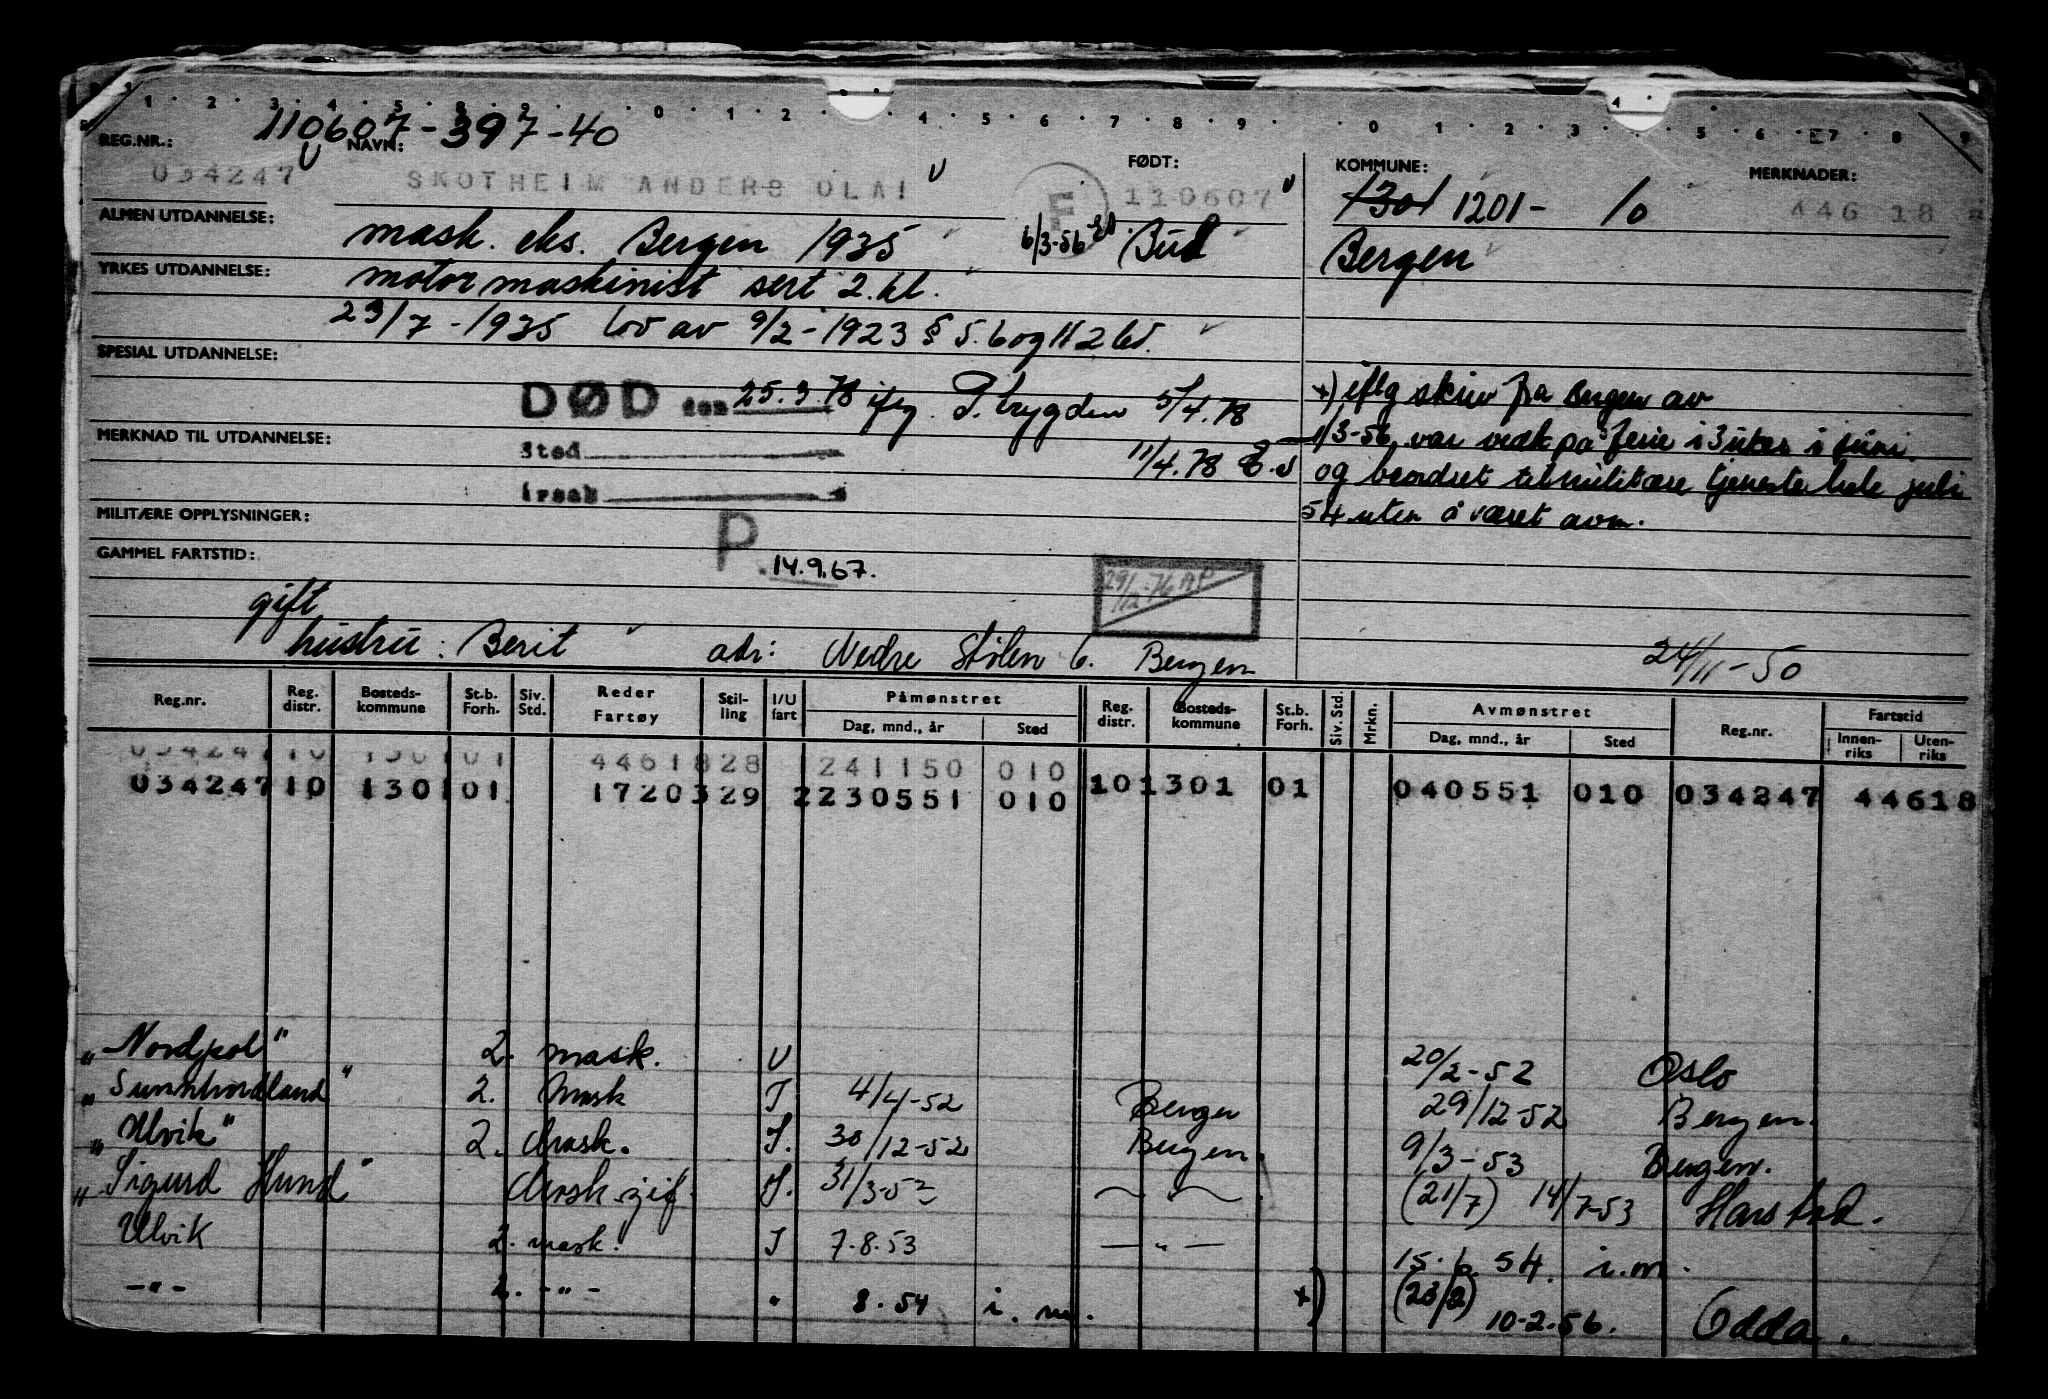 1 · 2 · 3 · 4 · 5 · 8 · 9 · 0 · 1 · 2 · 4 · 5 · 6 · 7 · 8 · 9 · 0 · 1 · 2 · 3 · 4 · 5 · 6 · 7 · 8 · 9
110607-397-40
REG.NR.: NAVN: FØDT: KOMMUNE: MERKNADER:
034247 SKOTHEIM ANDERS OLAI F 110607 1301 1201- 10 446 18
ALMEN UTDANNELSE: mask. eks. Bergen 1935 6/3-56 Bud Bergen
YRKES UTDANNELSE: motormaskinist sert 2.kl.
23/7-1935 lov av 9/2-1923 § 5.6 og 11 2 ld.
SPESIAL UTDANNELSE:
DØD den 25.3.78 ifg. P. trygden 5/4.78
MERKNAD TIL UTDANNELSE: Sted 11/4.78
årsak
MILITÆRE OPPLYSNINGER:
GAMMEL FARTSTID: P. 14.9.67.
29/12-76
x) iflg skriv fra Bergen av
1/3-56, var vedk på ferie i 3 uker i juni
og beordret til militære tjeneste hele juli
54 uten å været avm.
gift
hustru: Berit adr: Nedre Stølen 6. Bergen 24/11-50
Reg.nr. Reg. distr. Bosteds- kommune St.b. Forh. Siv. Std. Reder Fartøy Stil- ling I/U fart Påmønstret Dag, mnd., år Sted Reg. distr. Bosteds- kommune St.b. Forh. Siv. Std. Mrkn. Avmønstret Dag, mnd., år Sted Reg.nr. Fartstid Innen- riks Uten- riks
034247 10 1301 01 4461828 241150 010
034247 10 1301 01 1720329 2 230551 010 10 1301 01 040551 010 034247 44618
"Nordpol" 2. mask. U 20/2-52 Oslo
"Sunnhordland" 2. Mask I 4/4-52 Bergen 29/12-52 Bergen.
"Ulvik" 2. Mask. I. 30/12-52 Bergen. 9/3-53 Bergen.
"Sigurd Hund" Mask I. 31/3-52 — " — (21/7) 14/7-53 Harstad.
Ulvik 2. mask. I 7.8.53 — " — 15.6.54. i.m.
— " — 2. — " — " 8.54 i.m. x) (23/2) 10-2.56. Odda.